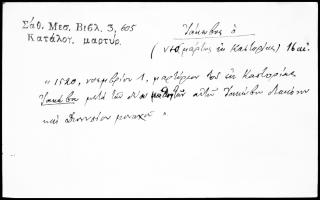 Σάθ. Μεσ. Βιβλ. 3, 605
Κατάλογ. μαρτύρ.
Ἰάκωβος ὁ
(νεομάρτυς ἐκ Καστορίας) 16 αἰ.
"1520, νοεμβρίου 1, μαρτύριον τοῦ ἐκ Καστορίας
Ἰακώβου μετὰ τῶν δύο μαθητῶν αὐτοῦ Ἰακώβου διακόνου
καὶ Διονυσίου μοναχοῦ"